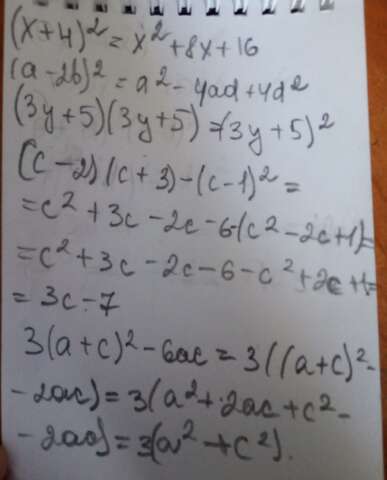 (x+4)² = x² + 8x + 16
(a - 2b)² = a² - 4ad + 4d²
(3y + 5)(3y + 5) = (3y + 5)²
(c - 2)(c + 3) - (c - 1)² =
= c² + 3c - 2c - 6 - (c² - 2c + 1) =
= c² + 3c - 2c - 6 - c² + 2c + 1 =
= 3c - 7
3(a + c)² - 6ac = 3((a + c)² -
- 2ac) = 3(a² + 2ac + c² -
- 2ac) = 3(a² + c²).